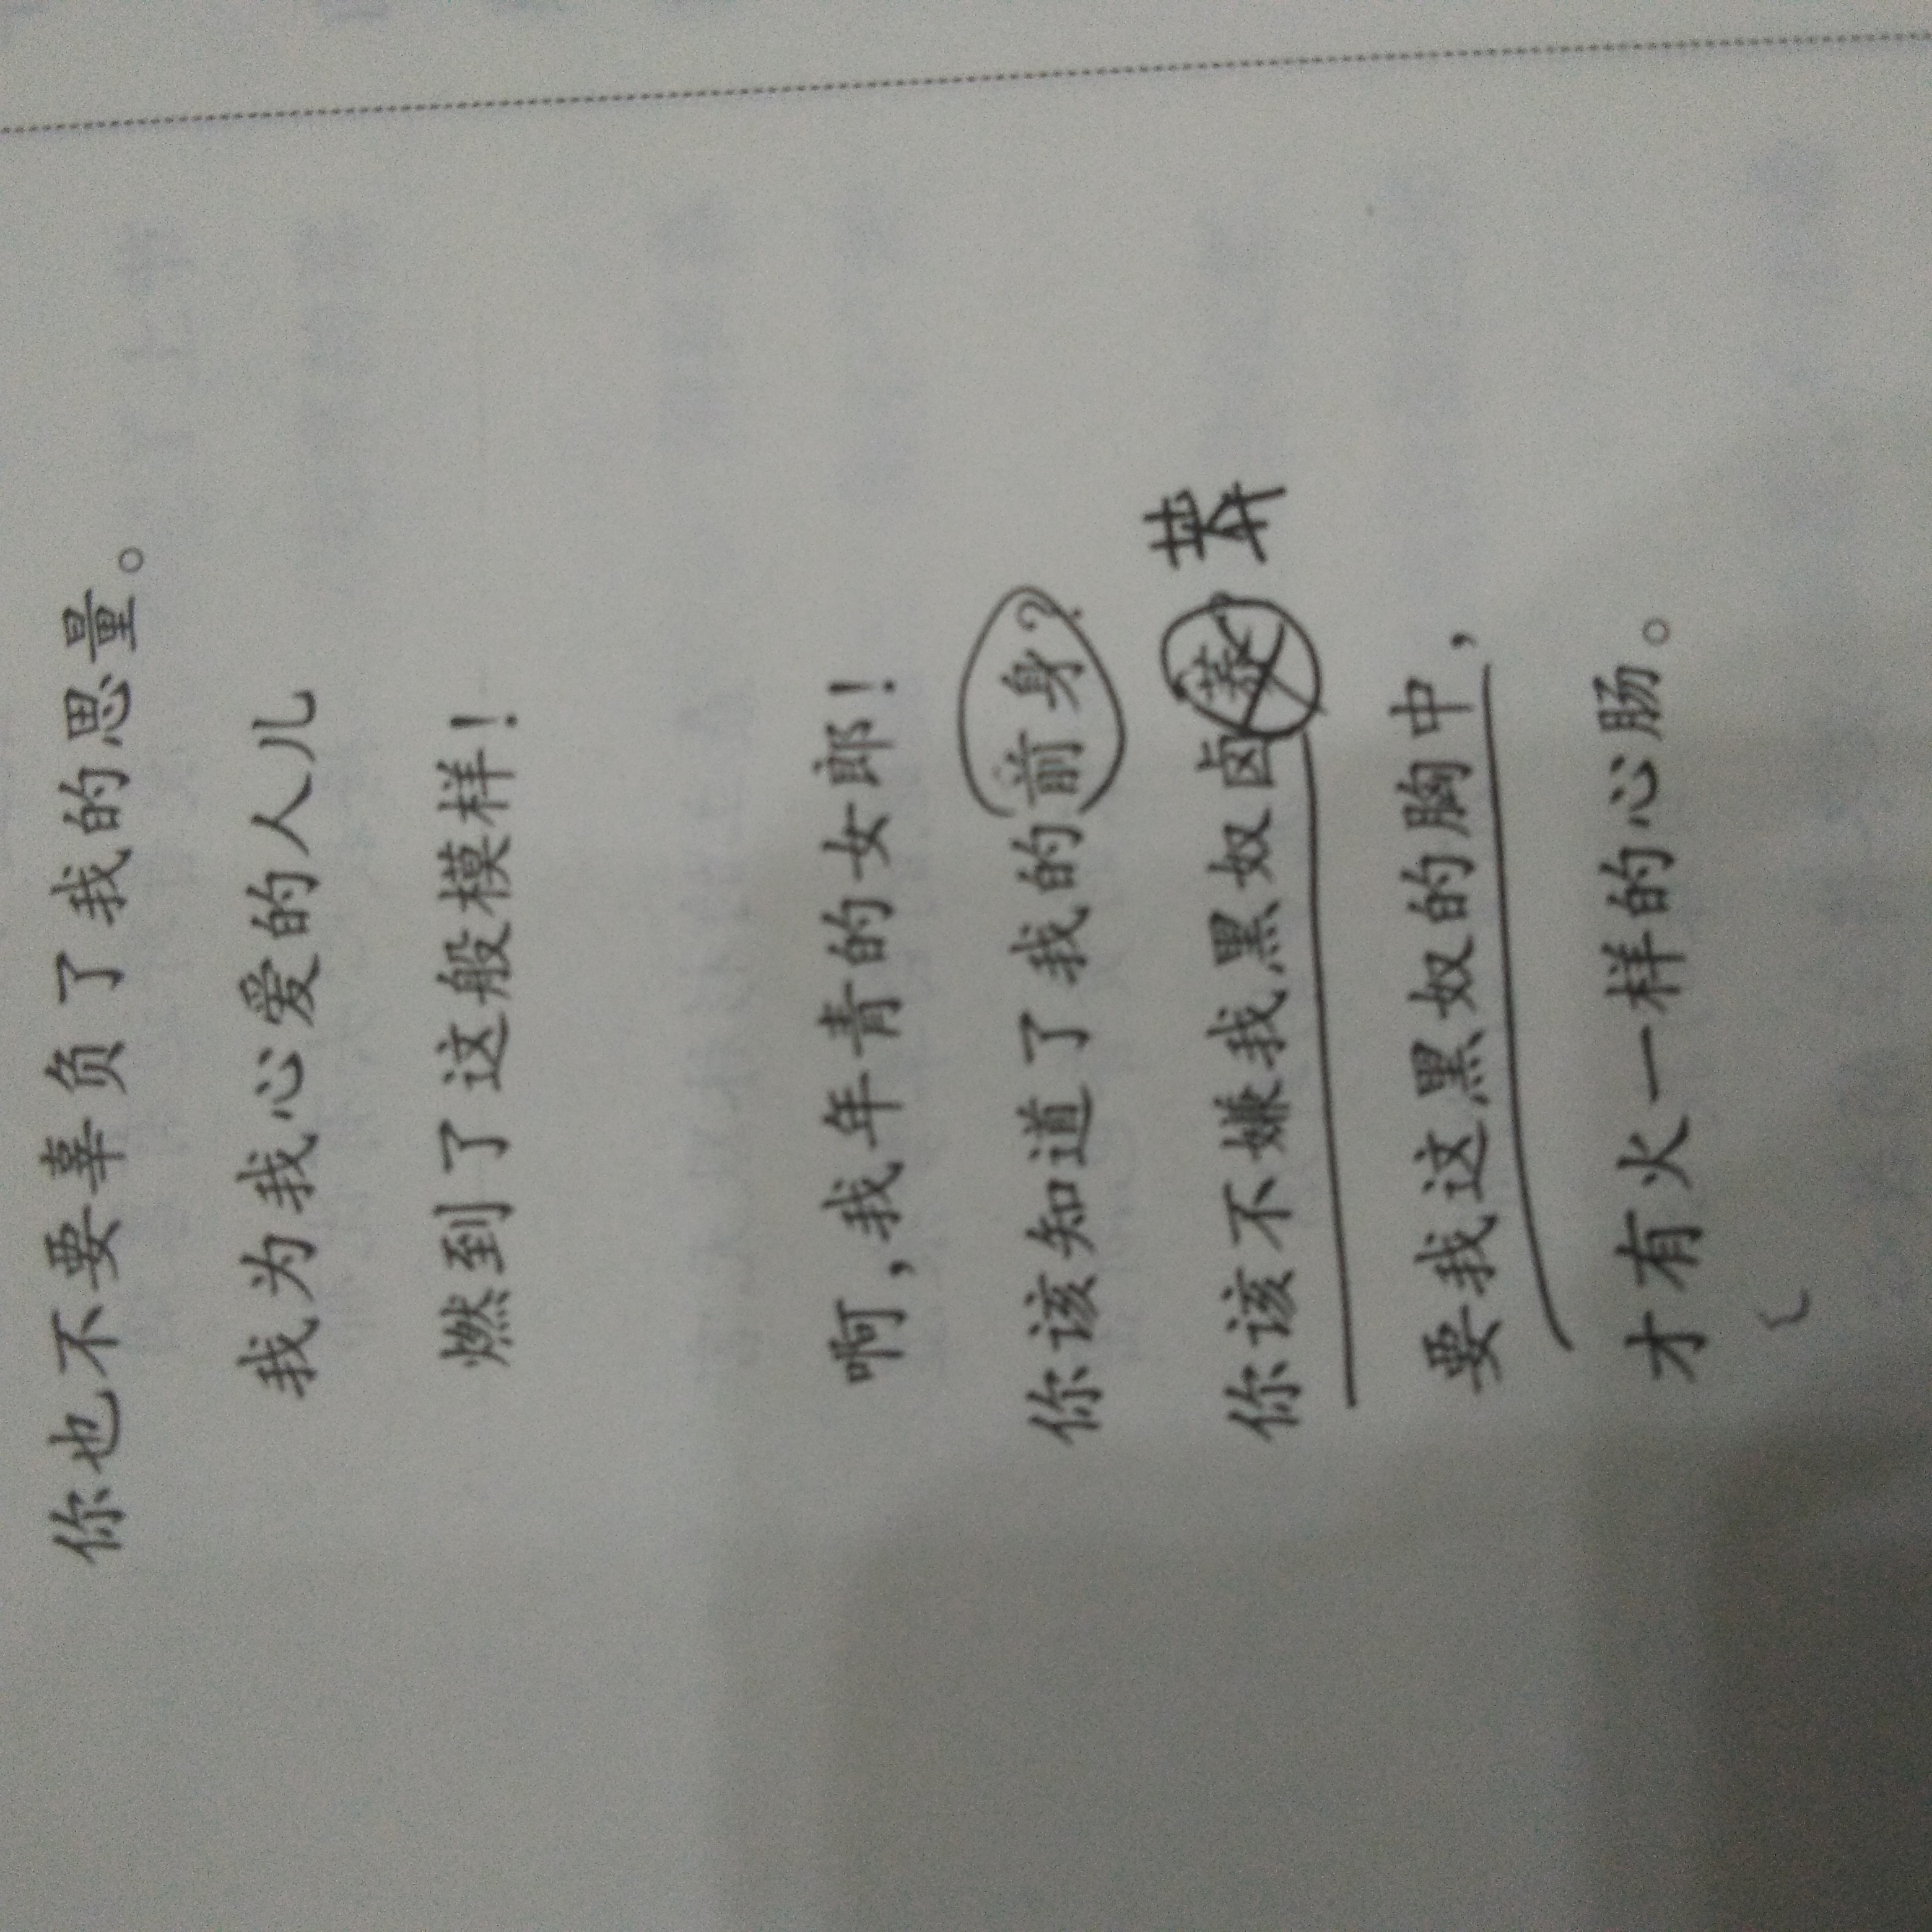 你也不要辜负了我的思量。
我为我心爱的人儿
燃到了这般模样！
啊，我年青的女郎！
你该知道了我的前身？
你该不嫌我黑奴卤莽
要我这黑奴的胸中，
才有火一样的心肠。